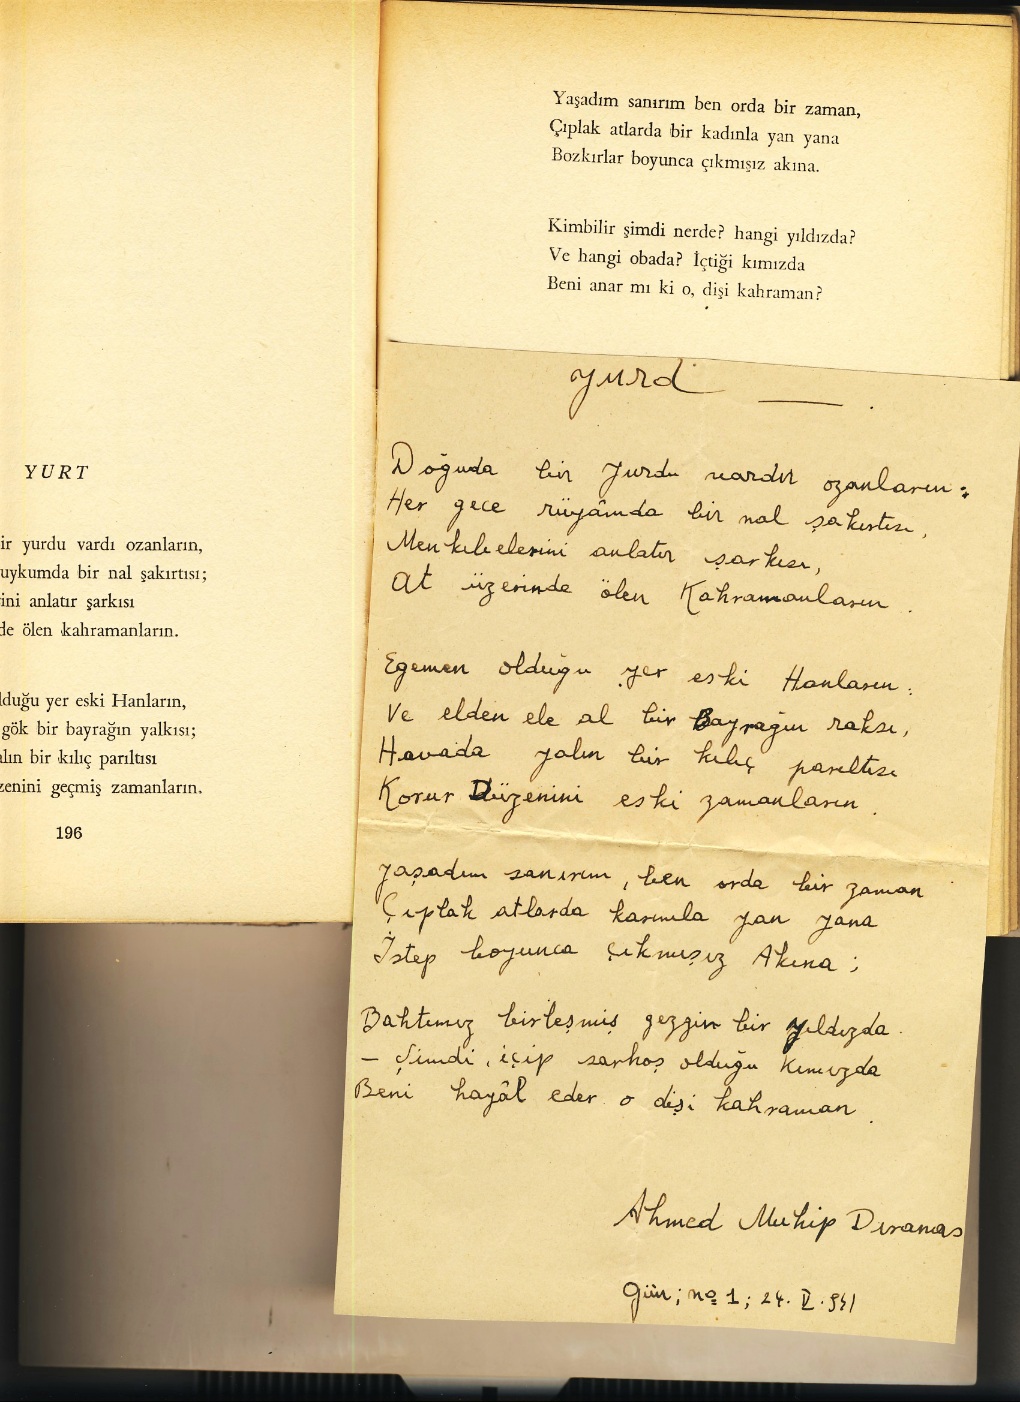 YURT
ir yurdu vardı ozanların,
uykumda bir nal şakırtısı;
ini anlatır şarkısı
de ölen kahramanların.
lduğu yer eski Hanların,
gök bir bayrağın yalkısı;
alın bir kılıç parıltısı
zenini geçmiş zamanların.
196
Yaşadım sanırım ben orda bir zaman,
Çıplak atlarda bir kadınla yan yana
Bozkırlar boyunca çıkmışız akına.
Kimbilir şimdi nerde? hangi yıldızda?
Ve hangi obada? İçtiği kımızda
Beni anar mı ki o, dişi kahraman?
Yurd
Doğuda bir Yurdu vardır ozanların:
Her gece rüyâmda bir nal şakırtısı,
Menkıbelerini anlatır şarkısı,
At üzerinde ölen Kahramanların.
Egemen olduğu yer eski Hanların:
Ve elden ele al bir Bayrağın raksı,
Havada yalın bir kılıç parıltısı
Korur Düzenini eski zamanların.
Yaşadım sanırım, ben orda bir zaman
Çıplak atlarda karımla yan yana
İstep boyunca çıkmışız Akına;
Bahtımız birleşmiş gezgin bir yıldızda.
- Şimdi, içip sarhoş olduğu kımızda
Beni hayâl eder o dişi kahraman.
Ahmed Muhip Dıranas
Gün; no 1; 24. V. 941